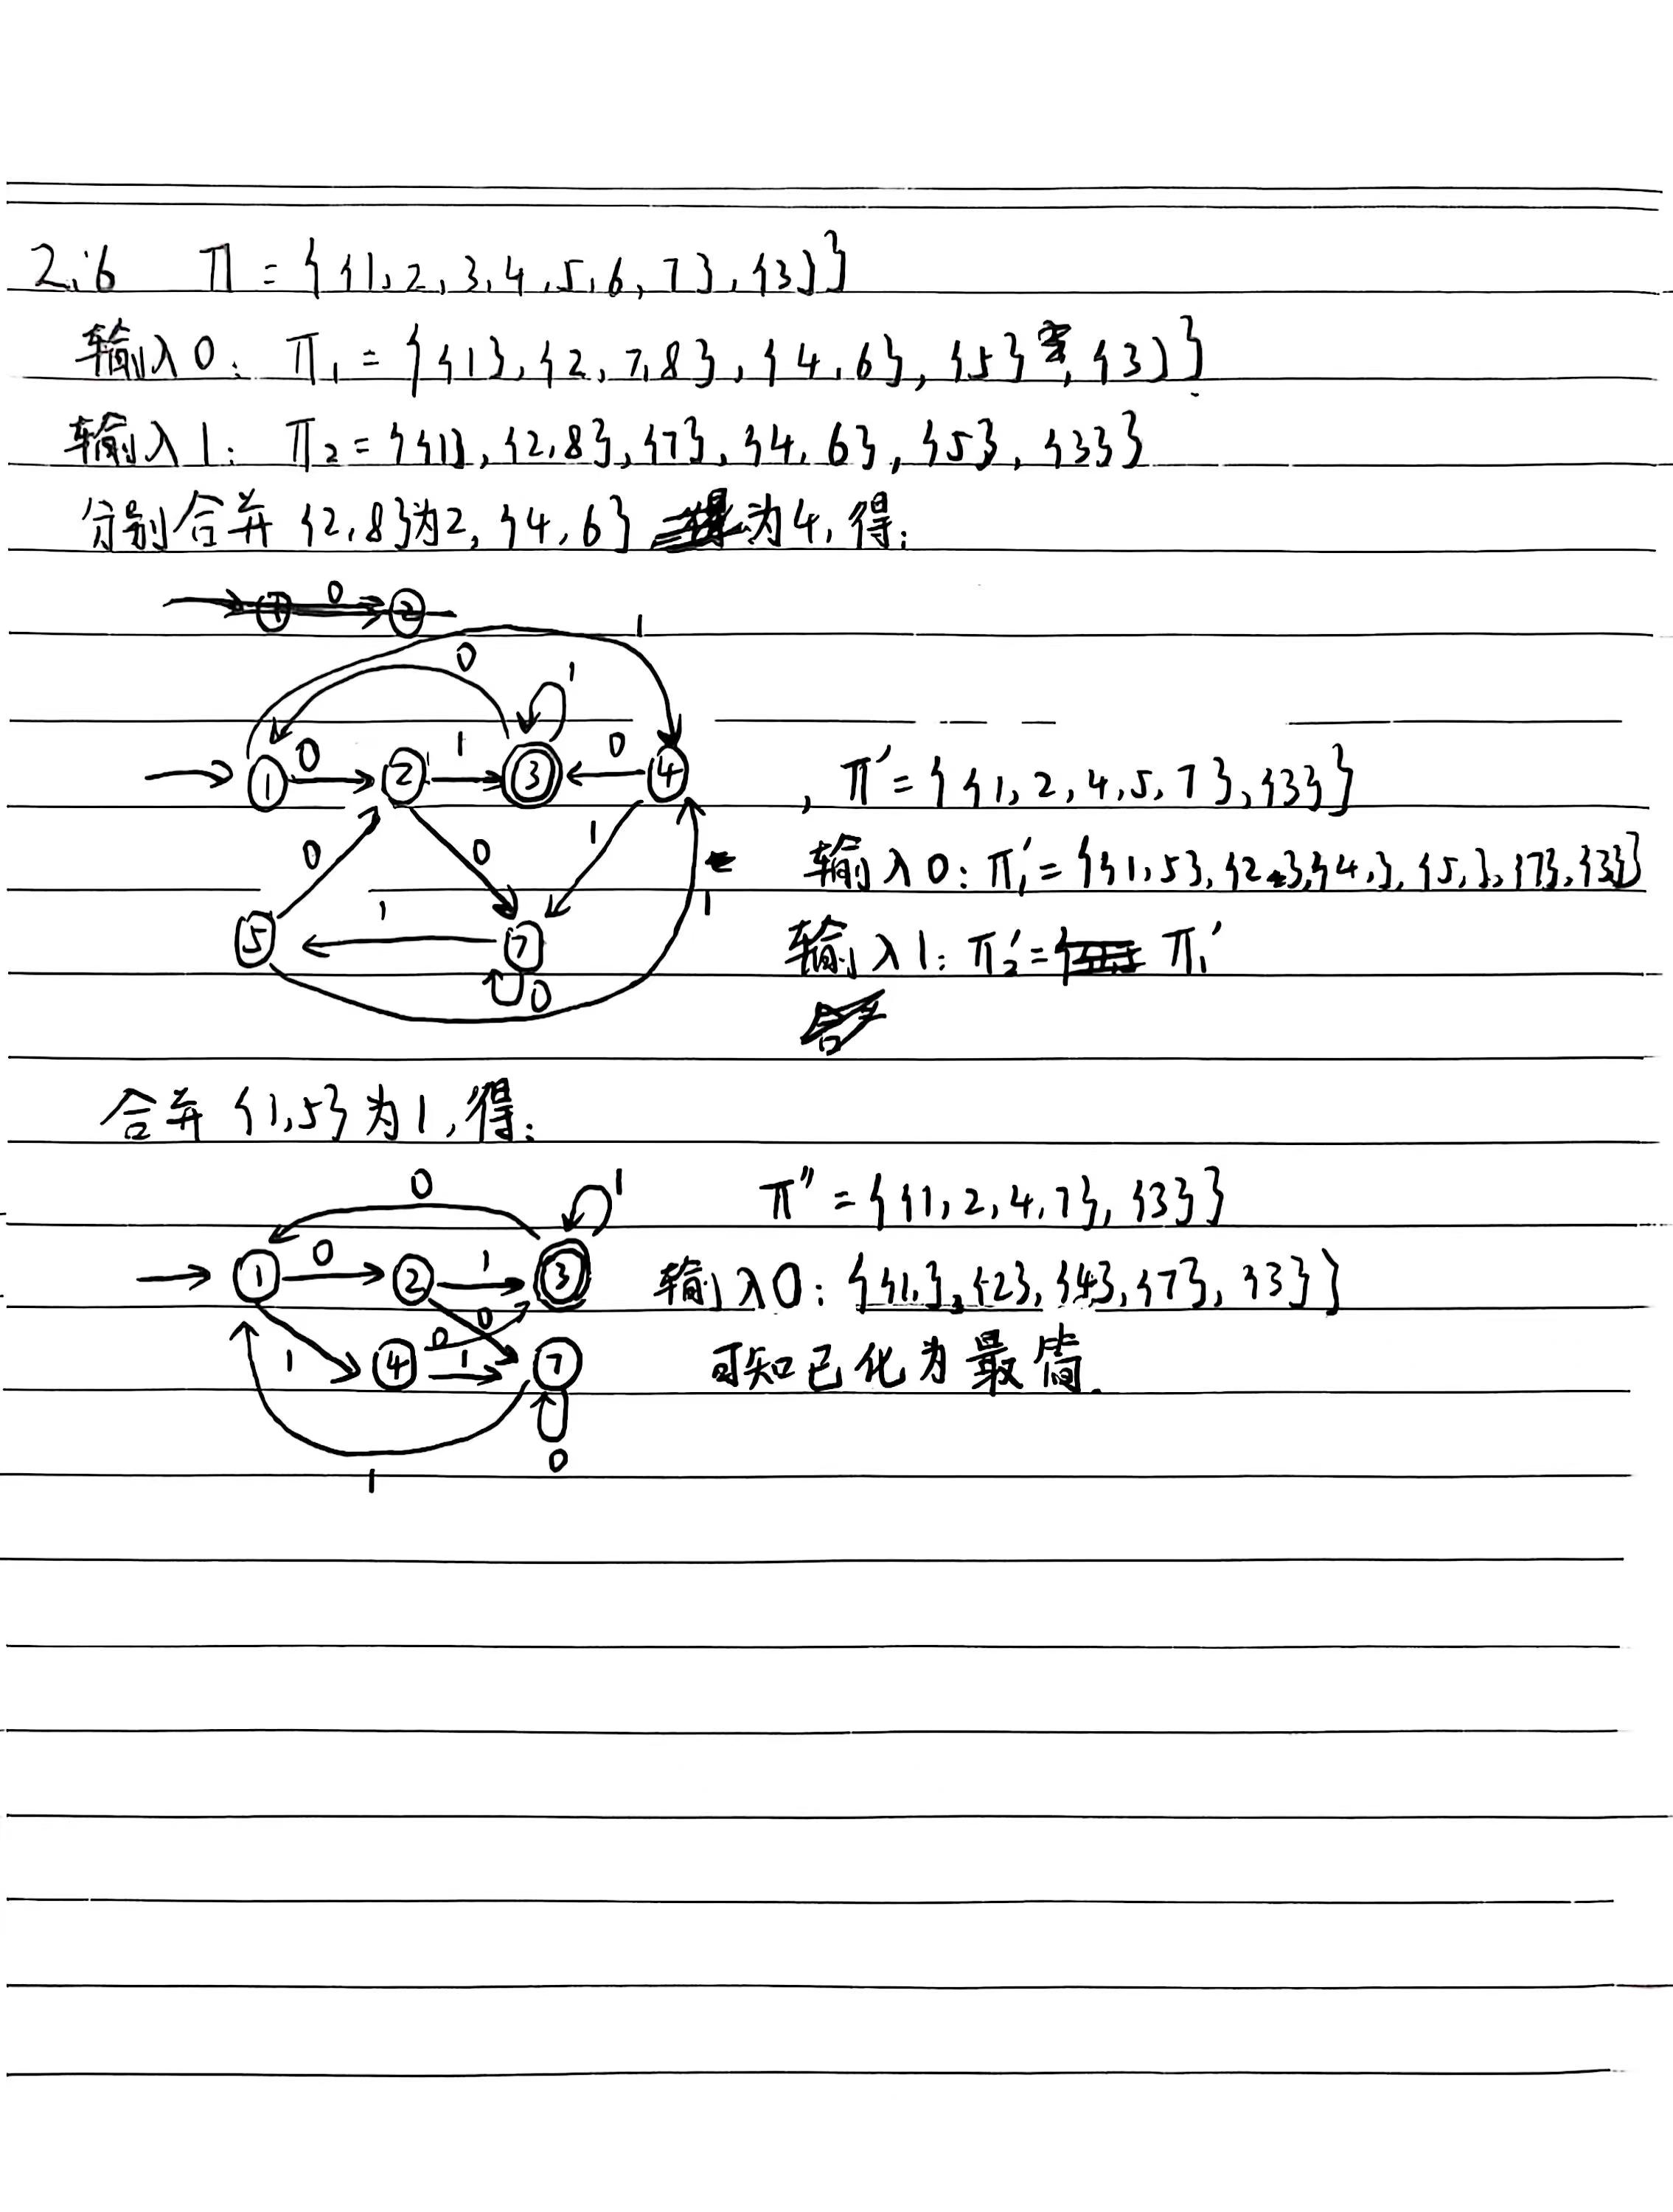 2.6 Π = {{1,2,3,4,5,6,7},{3}}
输入0: Π₁ = {{1},{2,7,8},{4,6},{5},{3}}
输入1: Π₂ = {{1},{2,8},{7},{4,6},{5},{3}}
分别合并{2,8}为2,{4,6}为4,得:
1 0 2
1
0
1
0 1 0
1 2 3 4
, Π′ = {{1,2,4,5,7},{3}}
0 0 1
输入0: Π₁′ = {{1,5},{2},{4,},{5,},{7},{3}}
1 1
5 7
0
输入1: Π₂′ = Π₁′
合并{1,5}为1,得:
0 1
Π″ = {{1,2,4,7},{3}}
0 1
1 2 3
输入0: {{1,},{2},{4},{7},{3}}
0 0
1 4 1 7
可知已化为最简.
0
1